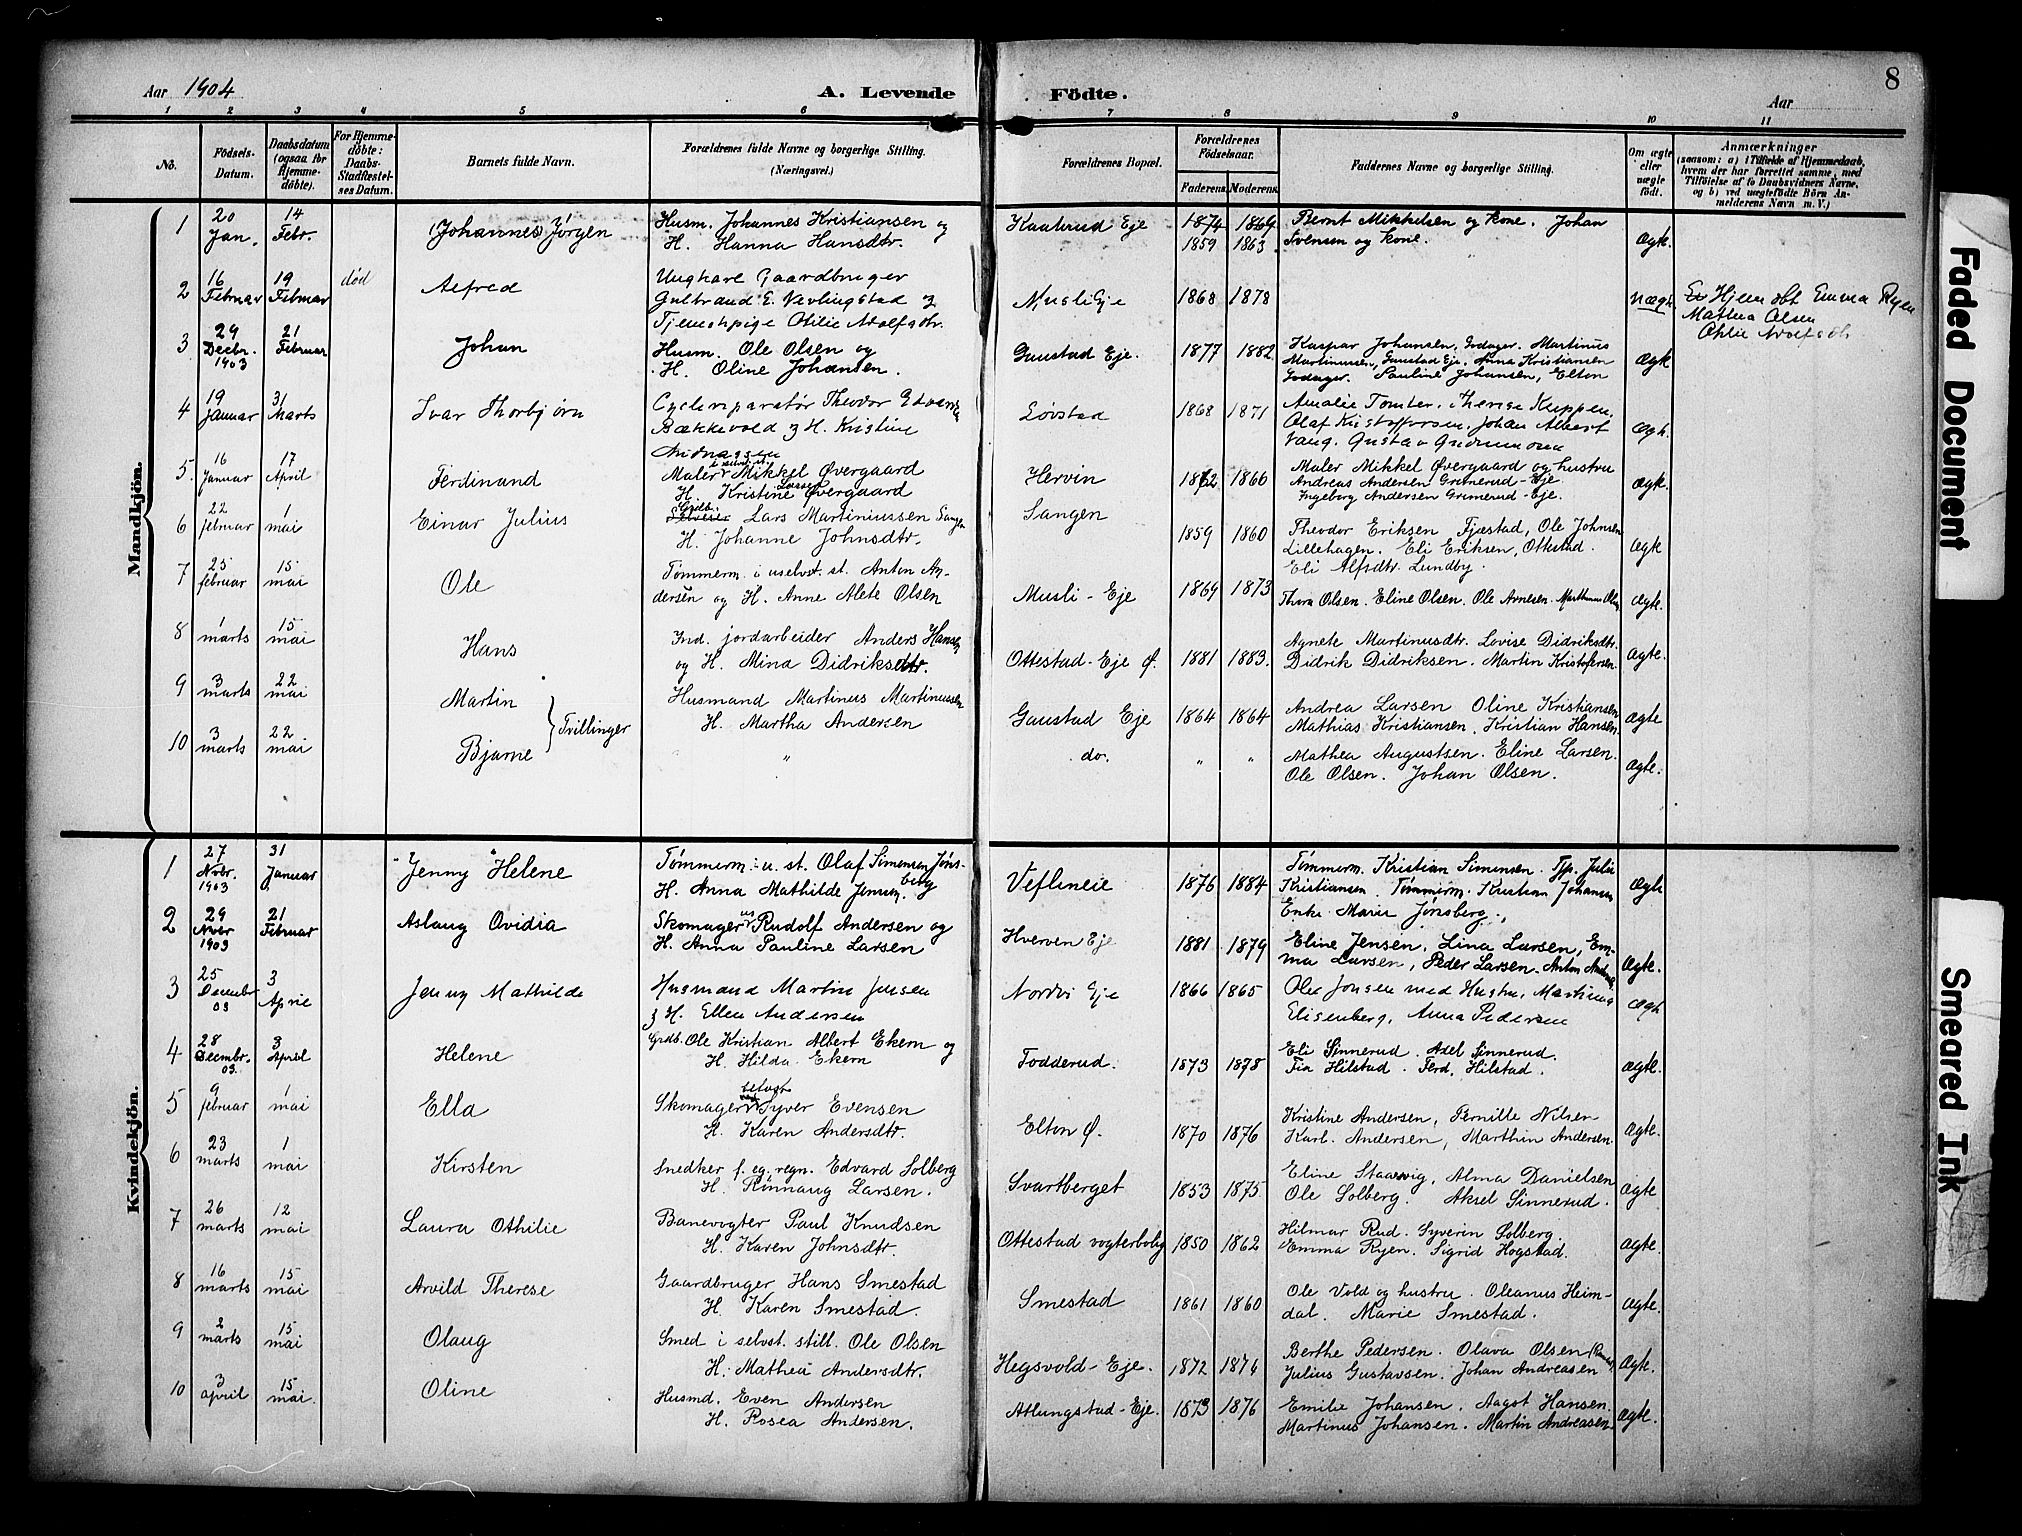 8
Aar 1904
A. Levende
Födte.
Aar
1 2 3 4 5 6 7 8 9 10 11
No.
Födsels-
Datum.
Daabsdatum
(ogsaa for
Hjemme-
döbte).
For Hjemme-
döbte:
Daabs-
Stadfæstel-
ses Datum.
Barnets fulde Navn.
Forældrenes fulde Navne og borgerlige Stilling.
(Næringsvei.)
Forældrenes Bopæl.
Forældrenes
Födselsaar.
Faderens. Moderens.
Faddernes Navne og borgerlige Stilling.
Om ægte
eller
uægte
födt.
Anmærkninger
(saasom: a) i Tilfælde af Hjemmedaab,
hvem der har forrettet samme, med
Tilföielse af to Daabsvidners Navne,
og b) ved uægtefödte Börn An-
melderens Navn m. V.)
Mandkjön.
1 20 Jan. 14 Febr. Johannes Jørgen
Husm. Johannes Kristiansen og
H. Hanna Hansdtr.
Kaaterud Eje 1874 1864
1859 1863
Bernt Mikkelsen og Kone. Johan
Svensen og Kone. Ægte.
2 16 Februar 19 Februar død Alfred
Ungkarl Gaardbruger
Gulbrand E. Vevlingstad og
Tjenestepige Otilie Adolfsdtr.
Musli Eje 1868 1878 uægte
Hjemdbt Emma Ryen
Mathea Olsen
Otilie Adolfsdtr.
3 29 Decbr. 1903 21 Februar Johan
Husm. Ole Olsen og
H. Oline Johansen.
Gaustad Eje. 1877 1882
Kaspar Johansen, Godager. Martinus
Martinussen, Gaustad Eje. Anna Kristiansen
Godager. Pauline Johansen, Elton Ægte
4 19 Januar 3 Marts Ivar Thorbjørn
Cyclereparatør Theodor Edvardsen
Bækkevold og H. Kristine
Løvstad 1868 1871
Amalie Tomter. Therese Kuppen,
Olaf Kristoffersen. Johan Albert
Vang. Gustav Gudmundsen Ægte.
5 16 Januar 17 April Ferdinand
Maler i selvst. st. Mikkel Øvergaard
H. Kristine Larsen Øvergaard
Hervin 1872 1866
Maler Mikkel Øvergaard og hustru
Andreas Andersen Grimerud-Eje
Ingeborg Andersen Grimerud-Eje. Ægte.
6 22 februar 1 mai Einar Julius
Grdb. Lars Martiniussen Sangen
H. Johanne Johnsdtr.
Sangen 1859 1860
Theodor Eriksen Fjæstad, Ole Johnsen
Lillehagen. Eli Eriksen, Ottestad.
Eli Alfsdtr. Lundby. Ægte
7 25 februar 15 mai Ole
Tømmerm. i uselvst. st. Anton An-
dersen og H. Anne Alete Olsen
Musli-Eje 1869 1873
Thora Olsen. Eline Olsen. Ole Arnesen. Marthinus Olsen Ægte.
8 1 marts 15 mai Hans
Ind. jordarbeider Anders Hansen
og H. Mina Didriksdtr.
Ottestad-Eje Ø. 1881 1883.
Agnete Martinusdtr. Lovise Didriksdtr.
Didrik Didriksen. Martin Kristofersen. Ægte.
9 3 marts 22 mai Martin
Husmand Martinus Martinussen
H. Martha Andersen
Tvillinger
Gaustad Eje 1864 1864
Andrea Larsen Oline Kristiansen
Mathias Kristiansen. Kristian Hansen. Ægte
10 3 marts 22 mai Bjarne
" do. " "
Mathea Augustsen. Eline Larsen.
Ole Olsen. Johan Olsen. Ægte.
Kvindekjön.
1 27 Nvbr. 1903 31 Januar "Jenny" Helene
Tømmerm. i u. st. Olaf Simensen Jøns-
berg
H. Anna Mathilde Jensen.
Veflineie 1876 1884
Tømmerm. Kristian Simensen. Tjp. Julie
Kristiansen. Tømmerm. Kristian Johansen
Enke Marie Jønsberg. Ægte
2 29 Nvbr 1903 21 Februar Aslaug Ovidia
Skomager us Rudolf Andersen og
H. Anna Pauline Larsen
Hverven Eje 1881 1879
Eline Jensen, Lina Larsen, Em-
ma Larsen, Peder Larsen. Anton Andersen Ægte.
3 25 December 03 3 April Jenny Mathilde
Husmand Martin Jensen
og H. Ellen Andersen
Nordvi Eje 1866 1865
Ole Jonsen med Hustru, Martinus
Elisenberg, Anna Pedersen Ægte
4 28 Decembr. 03. 3 April Helene
Grdb. Ole Kristian Albert Ekern og
H. Hilda Ekern
Fodderud. 1873 1878
Eli Sinnerud. Axel Sinnerud.
Fia Hilstad. Ferd. Hilstad. Ægte.
5 9 februar 1 mai Ella
Skomager Syver Evensen
H. Karen Andersdtr.
Elton Ø. 1870 1876
Kristine Andersen, Pernille Nilsen
Karl. Andersen, Marthin Andersen. Ægte.
6 23 marts 1 mai Kirsten
Snedker f. eg. regn. Edvard Solberg
H. Rønnaug Larsen.
Svartberget 1853 1875
Eline Staavig, Alma Danielsen
Ole Solberg. Aksel Sinnerud. Ægte
7 26 marts 12 mai Laura Othilie
Banevogter Paul Knudsen
H. Karen Johnsdtr.
Ottestad vogterbolig 1850 1862
Hilmar Rud. Syverin Solberg.
Emma Ryen. Sigrid Hogstad. Ægte.
8 16 marts 15 mai Arvild Therese
Gaardbruger Hans Smestad
H. Karen Smestad.
Smestad 1861 1860
Ole Vold og hustru. Oleanus Heim-
dal. Marie Smestad. Ægte.
9 2 marts 15 mai Olaug
Smed i selvst. still. Ole Olsen
H. Mathea Andersdtr.
Hegsvold-Eje. 1872 1876
Berthe Pedersen. Olava Olsen
Julius Gustavsen. Johan Andreasen Ægte.
10 3 april 15 mai. Oline
Husmd. Even Andersen
H. Rosea Andersen.
Atlungstad-Eje. 1873 1876
Emilie Johansen. Aagot Hansen.
Martinus Johansen. Martin Andreasen. Ægte.
Faded Document
Smeared Ink